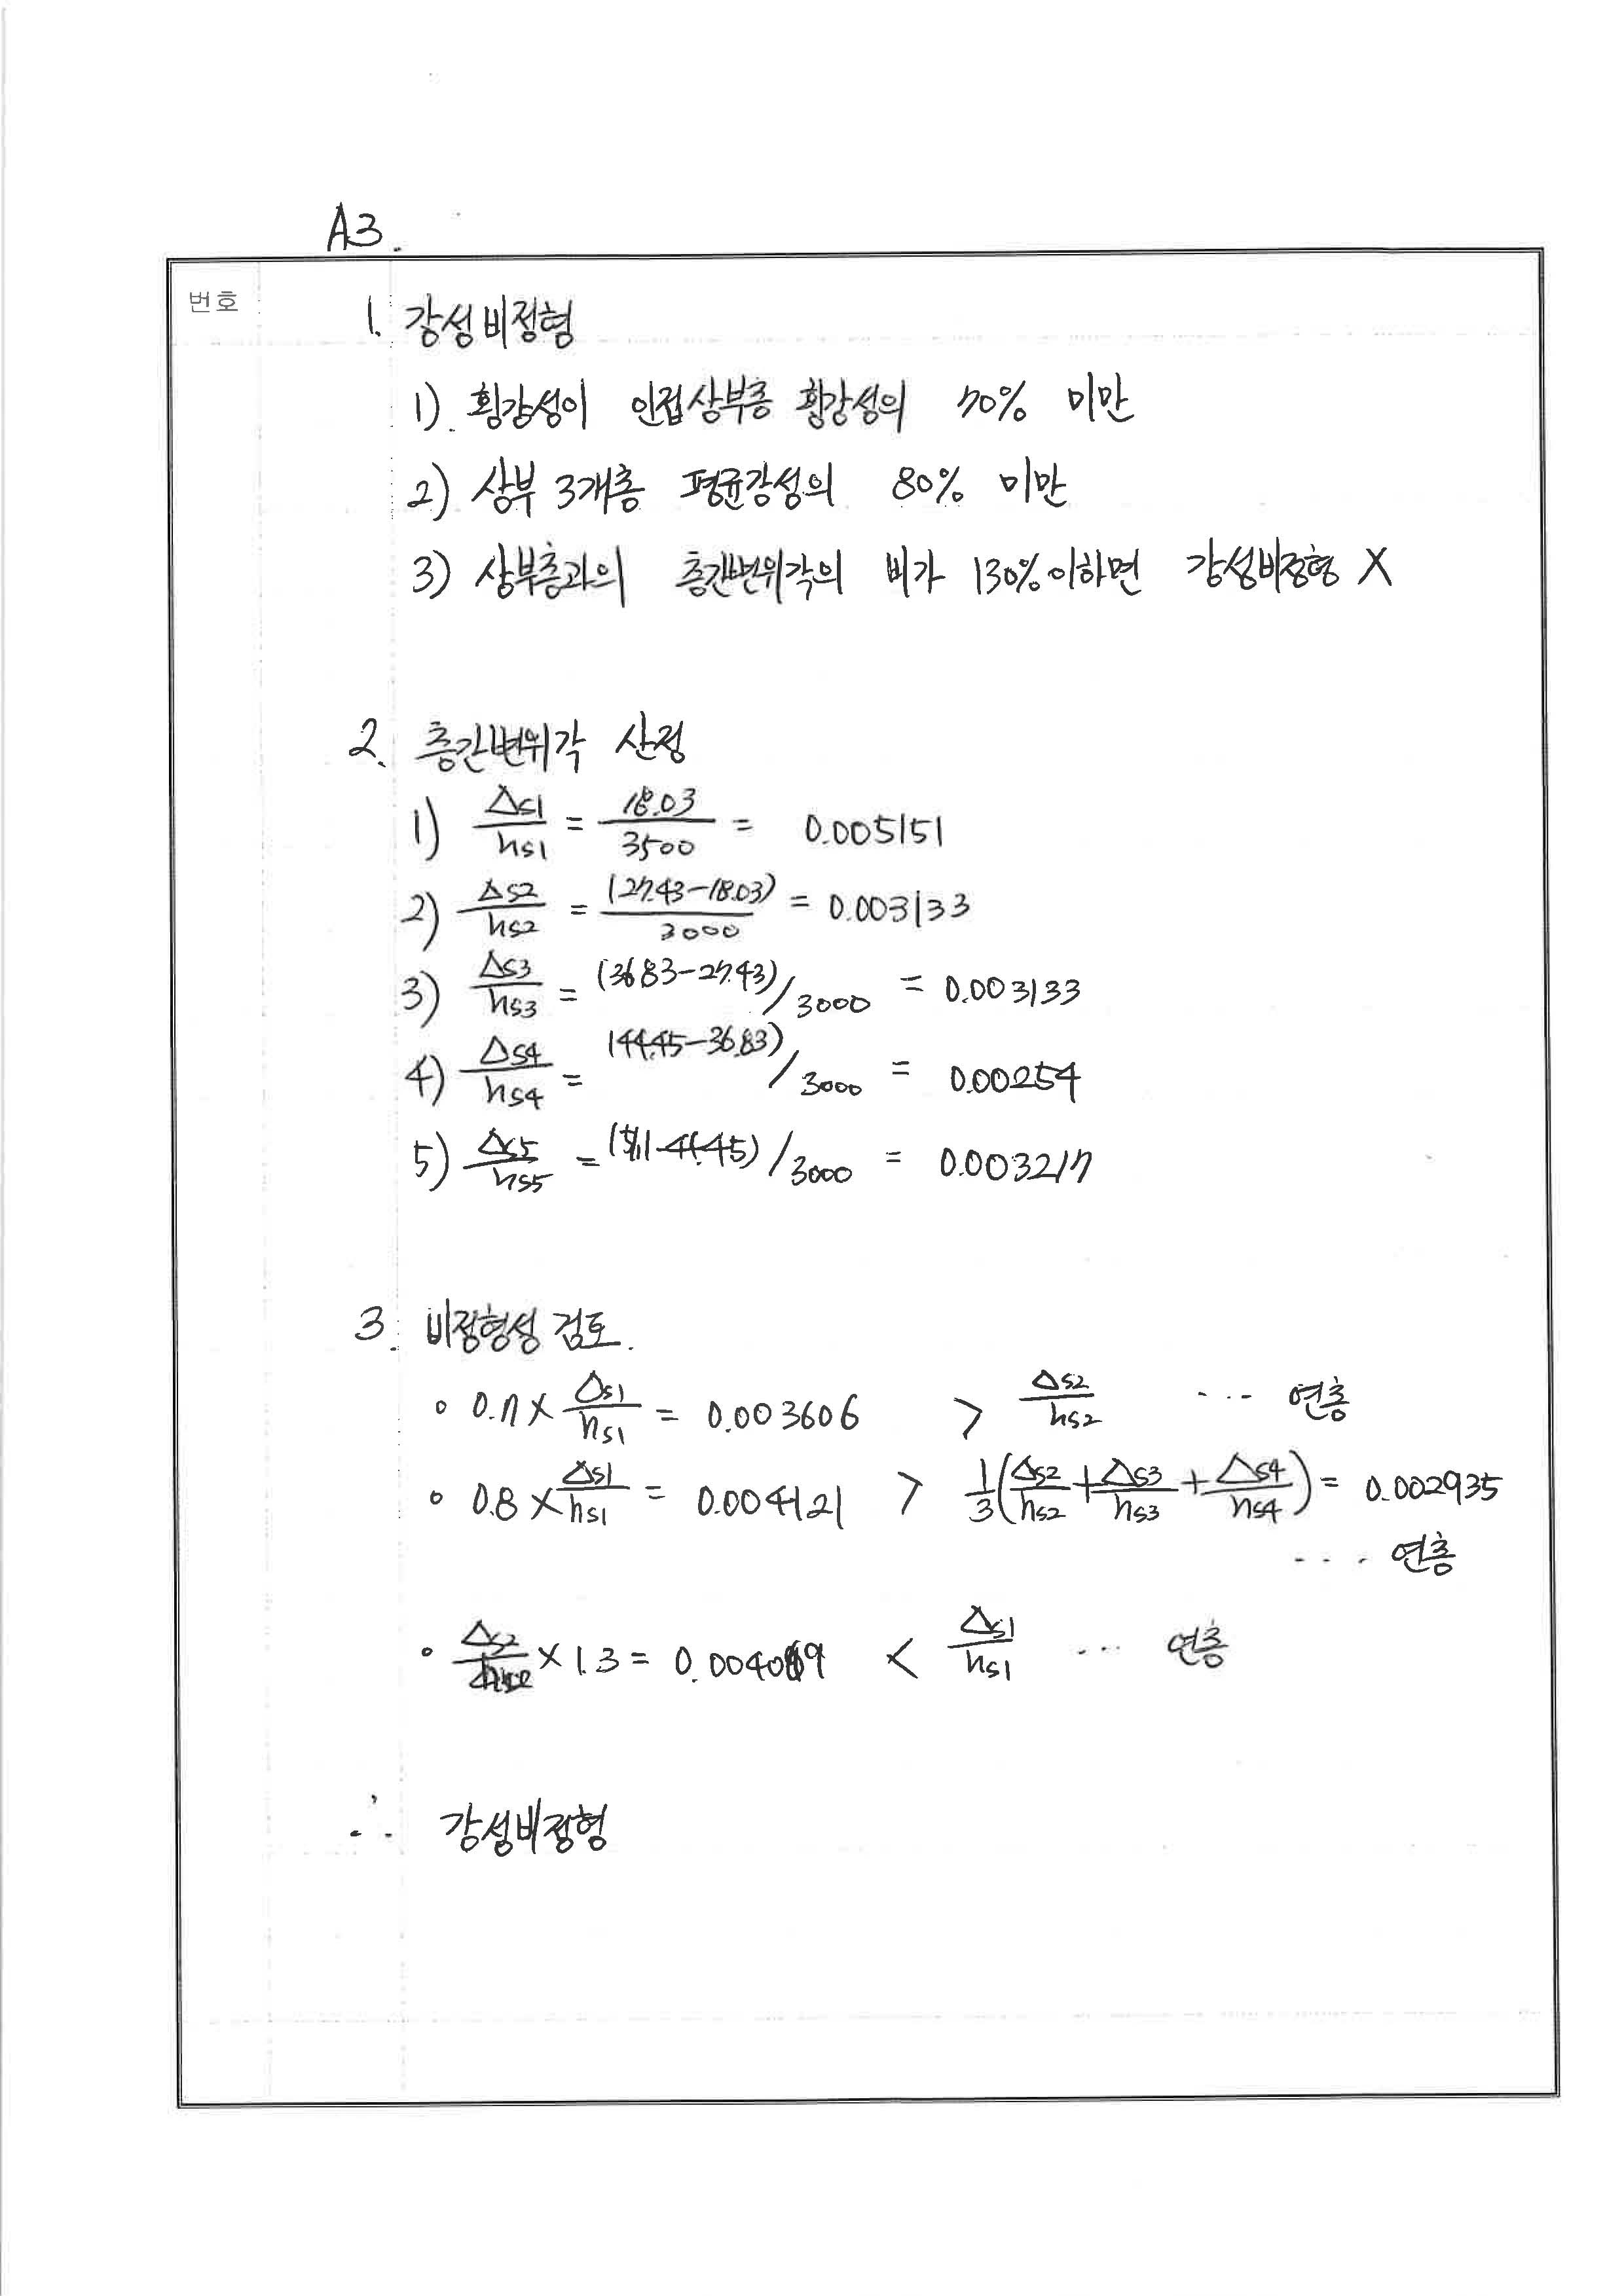 A3.
번호
1. 강성비정형
1) 횡강성이 인접상부층 횡강성의 70% 미만
2) 상부 3개층 평균강성의 80% 미만
3) 상부층과의 층간변위각의 비가 130%이하면 강성비정형 X
2. 층간변위각 산정
1) Δs1/hs1 = 18.03/3500 = 0.005151
2) Δs2/hs2 = (27.43-18.03)/3000 = 0.003133
3) Δs3/hs3 = (36.83-27.43)/3000 = 0.003133
4) Δs4/hs4 = (44.45-36.83)/3000 = 0.00254
5) Δs5/hs5 = ( -44.45)/3000 = 0.003217
3. 비정형성 검토.
∘ 0.7 × Δs1/hs1 = 0.003606 > Δs2/hs2 ... 연층
∘ 0.8 × Δs1/hs1 = 0.004121 > 1/3(Δs2/hs2 + Δs3/hs3 + Δs4/hs4) = 0.002935
... 연층
∘ Δs2/ × 1.3 = < Δs1/hs1 ... 연층
∴ 강성비정형